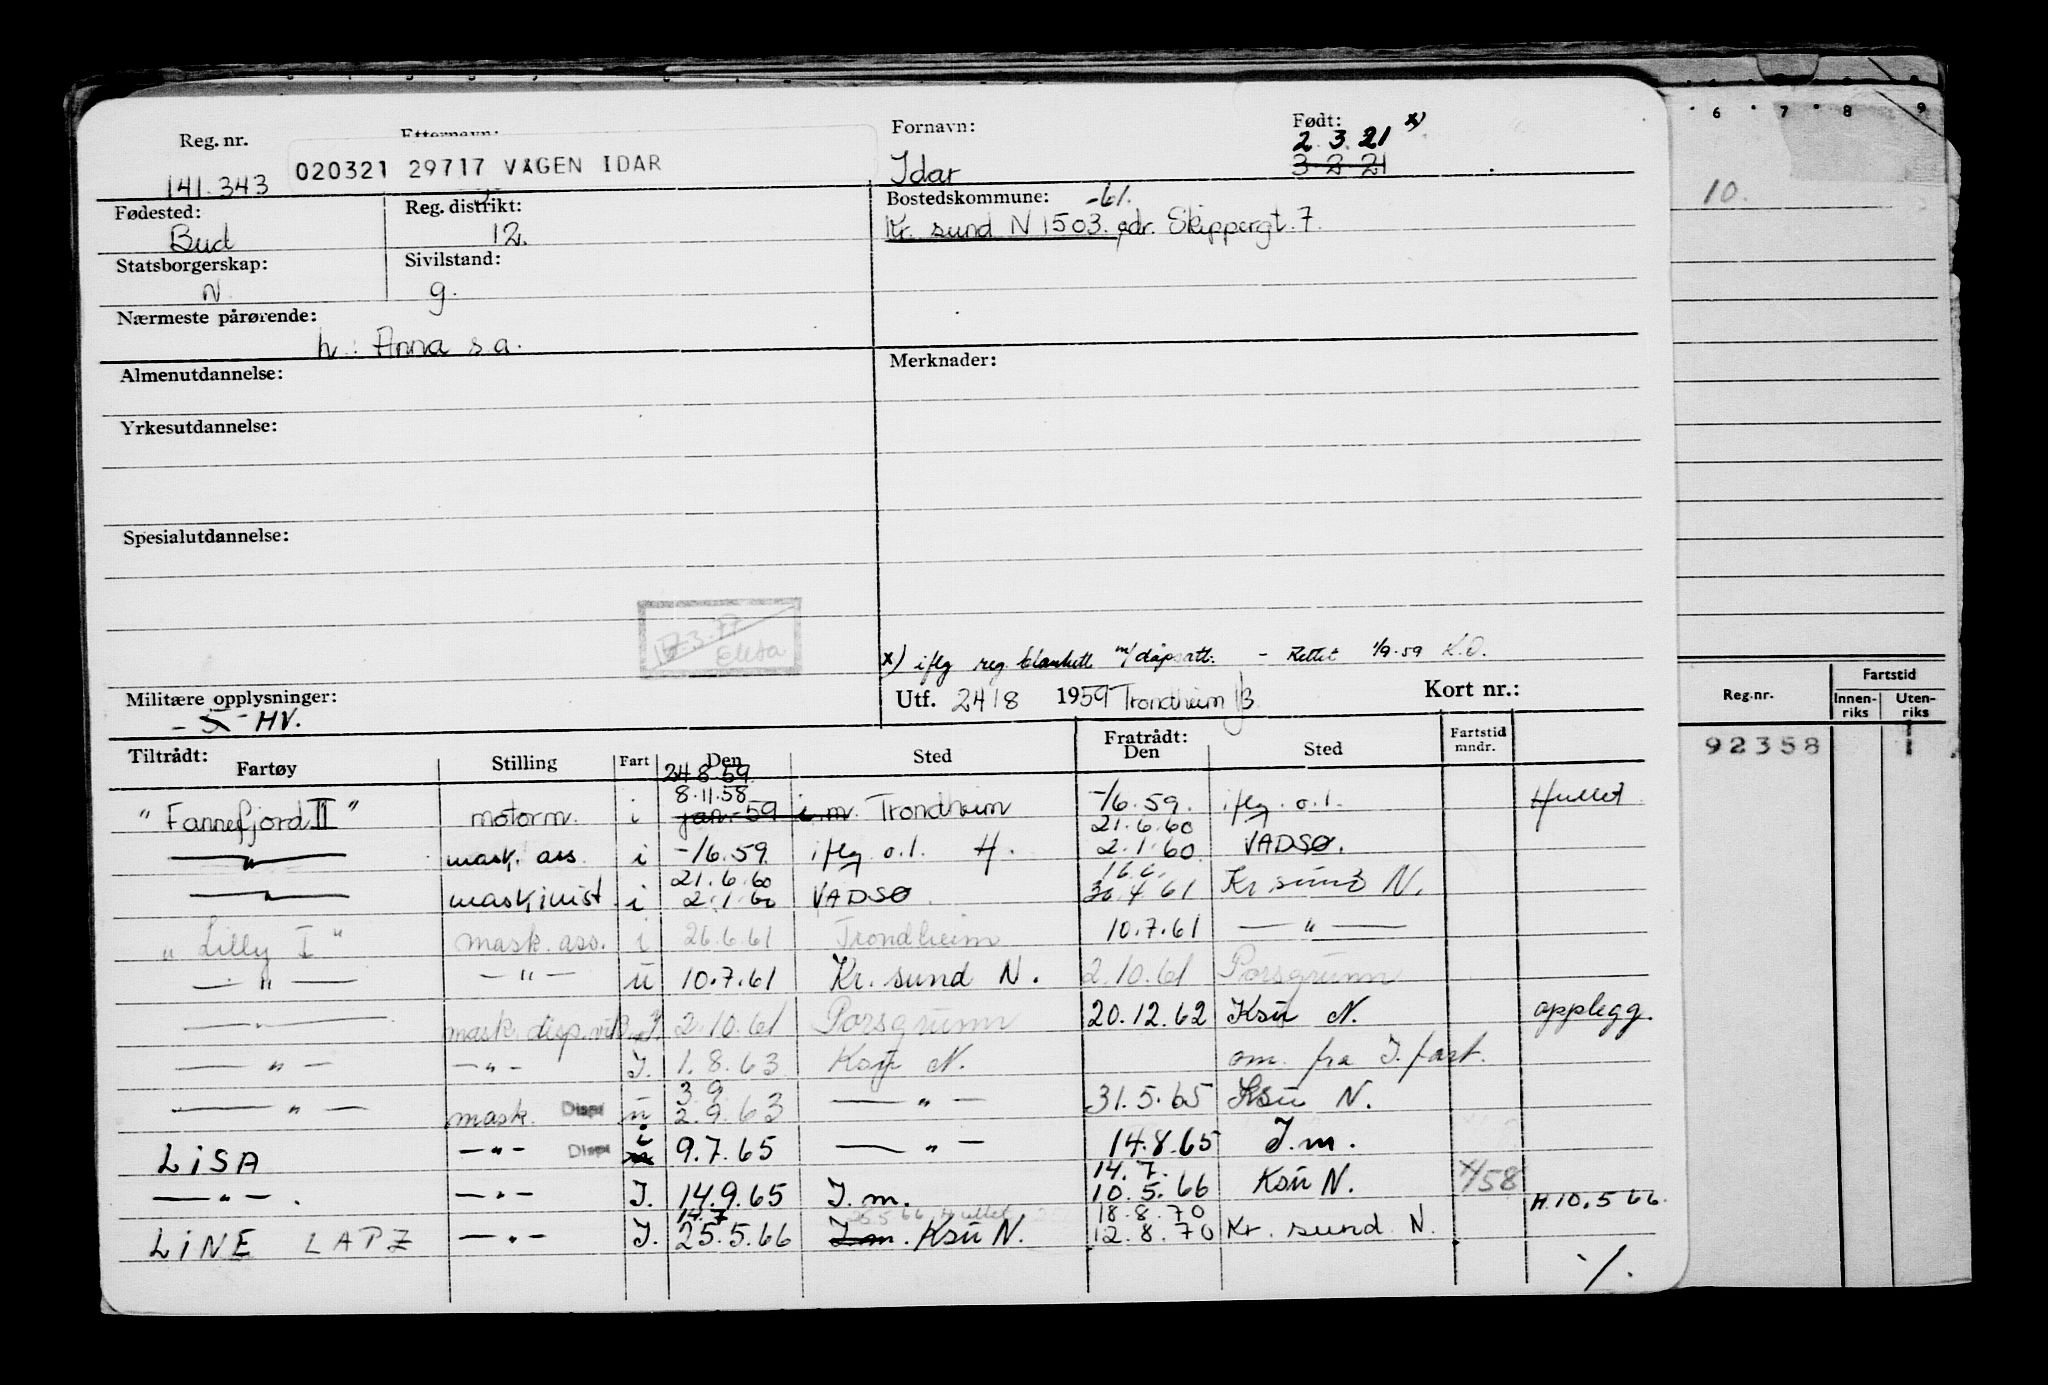 Reg. nr. Etternavn: Fornavn: Født:
2.3.21 x)
141.343 020321 29717 VÅGEN IDAR Idar 3-2-21
Fødested: Reg. distrikt: Bostedskommune: -61.
Bud 12. Kr. sund N 1503. adr. Skippergt. 7.
Statsborgerskap: Sivilstand:
N g.
Nærmeste pårørende:
h.: Anna s.a.
Almenutdannelse: Merknader:
Yrkesutdannelse:
Spesialutdannelse:
x) iflg reg blankett m/dåpsatt. - Rettet 1/9-59 K.O.
Militære opplysninger: Utf. 24/8 1959 Trondheim Kort nr.:
HV.
Tiltrådt: Fratrådt:
Fartøy Stilling Fart Den Sted Den Sted Fartstid mndr.
24.8.59
8.11.58
"Fannefjord II" motorm. i jan.-59 i.m. Trondheim -/6.59. iflg. o.l. Hullet
21.6.60
—"— mask. ass. i -/6.59 iflg o.l. H. 2.1.60 VADSØ.
21.6.60 16.6.
—"— maskinist i 2.1.60 VADSØ 30.4.61 Kr sund N.
"Lilly I" mask. ass. i 26.6.61 Trondheim 10.7.61 —"—
—"— —"— u 10.7.61 Kr. sund N. 2.10.61 Porsgrunn
—"— mask. disp. 2.10.61 Porsgrunn 20.12.62 Ksu N. opplegg.
—"— —"— I. 1.8.63 Ksu N. om. fra I. fart.
3.9
—"— mask. Disp u 2.9.63 —"— 31.5.65 Ksu N.
LISA —"— Disp i 9.7.65 —"— 14.8.65 I.m.
14.7.
—"—. —"— I. 14.9.65 I.m. 10.5.66 Ksu N. H.10.5 66
14.7 25.5 66 Hullet 18.8.70
LINE LAPZ —"— I. 25.5.66 I.m. Ksu N. 12.8.70 Kr. sund N.
./.
6 7 8 9
10.
Reg.nr. Fartstid
Innenriks Utenriks
92358 1